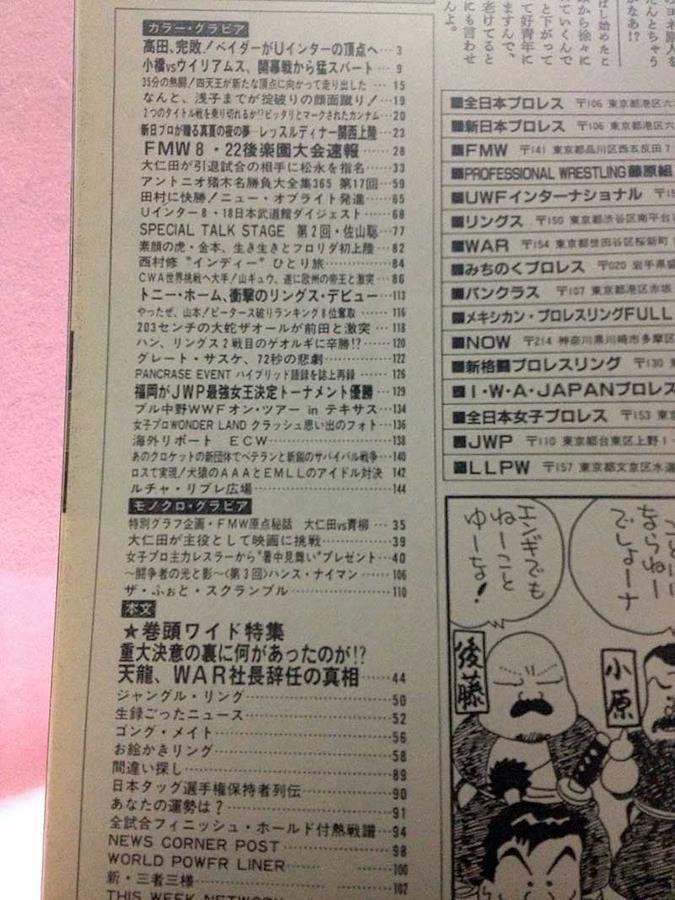 カラー・グラビア
高田、完敗！ベイダーがUインターの頂点へ…3
小橋vsウイリアムス、開幕戦から猛スパート…9
35分の熱闘！四天王が新たな頂点に向かって走り出した…15
なんと、浅子までが掟破りの顔面蹴り！…19
2つのタイトル戦を乗り切れるか!?ピッタリとマークされたカンナム…20
新日プロが贈る真夏の夜の夢―レッスルディナー関西上陸…23
FMW8・22後楽園大会速報…28
大仁田が引退試合の相手に松永を指名…33
アントニオ猪木名勝負大全集365 第17回…59
田村に快勝！ニュー・オブライト発進…65
Uインター8・18日本武道館ダイジェスト…68
SPECIAL TALK STAGE 第2回・佐山聡…77
素顔の虎・金本、生き生きとフロリダ初上陸…82
西村修“インディー”ひとり旅…84
CWA世界挑戦へ大手！山ギュウ、遂に欧州の帝王と激突…86
トニー・ホーム、衝撃のリングス・デビュー…113
やったぜ、山本！ピータース破りランキング8位奪取…116
203センチの大蛇ザオールが前田と激突…118
ハン、リングス2戦目のゲオルギに辛勝!?…120
グレート・サスケ、72秒の悲劇…122
PANCRASE EVENT ハイブリッド語録を誌上再録…126
福岡がJWP最強女王決定トーナメント優勝…129
ブル中野WWFオン・ツアー in テキサス…134
女子プロWONDER LAND クラッシュ思い出のフォト…136
海外リポート ECW…138
あのクロケットの新団体でベテランと新鋭のサバイバル戦争…140
ロスで実現！犬猿のAAAとEMLLのアイドル対決 142
ルチャ・リブレ広場…144
モノクロ・グラビア
特別グラフ企画・FMW原点秘話 大仁田vs青柳…35
大仁田が主役として映画に挑戦…39
女子プロ主力レスラーから“暑中見舞い”プレゼント…40
〜闘争者の光と影〜〈第3回〉ハンス・ナイマン…106
ザ・ふぉと・スクランブル…110
本文
★巻頭ワイド特集
重大決意の裏に何があったのが!?
天龍、WAR社長辞任の真相…44
ジャングル・リング…50
生録ごったニュース…52
ゴング・メイト…56
お絵かきリング…58
間違い探し…89
日本タッグ選手権保持者列伝…90
あなたの運勢は？…91
全試合フィニッシュ・ホールド付熱戦譜…94
NEWS CORNER POST…98
WORLD POWFR LINER…100
新・三者三様…102
THIS WEEK NETWORK
■全日本プロレス 〒106 東京都港区六
■新日本プロレス 〒106 東京都港区六
■FMW 〒141 東京都品川区西五反田7
■PROFESSIONAL WRESTLING藤原組
■UWFインターナショナル
■リングス 〒150 東京都渋谷区南平台
■WAR 〒154 東京都世田谷区桜新町
■みちのくプロレス 〒020 岩手県盛
■パンクラス 〒107 東京都港区赤坂
■メキシカン・プロレスリングFULL
■NOW 〒214 神奈川県川崎市多摩区
■新格闘プロレスリング 〒130
■I・W・A・JAPANプロレス
■全日本女子プロレス 〒153 東
■JWP 〒110 東京都台東区上野1
■LLPW 〒157 東京都文京区水道
ならねー
でしょーナ
エンギでも
ねーこと
ゆーな！
後藤
小原